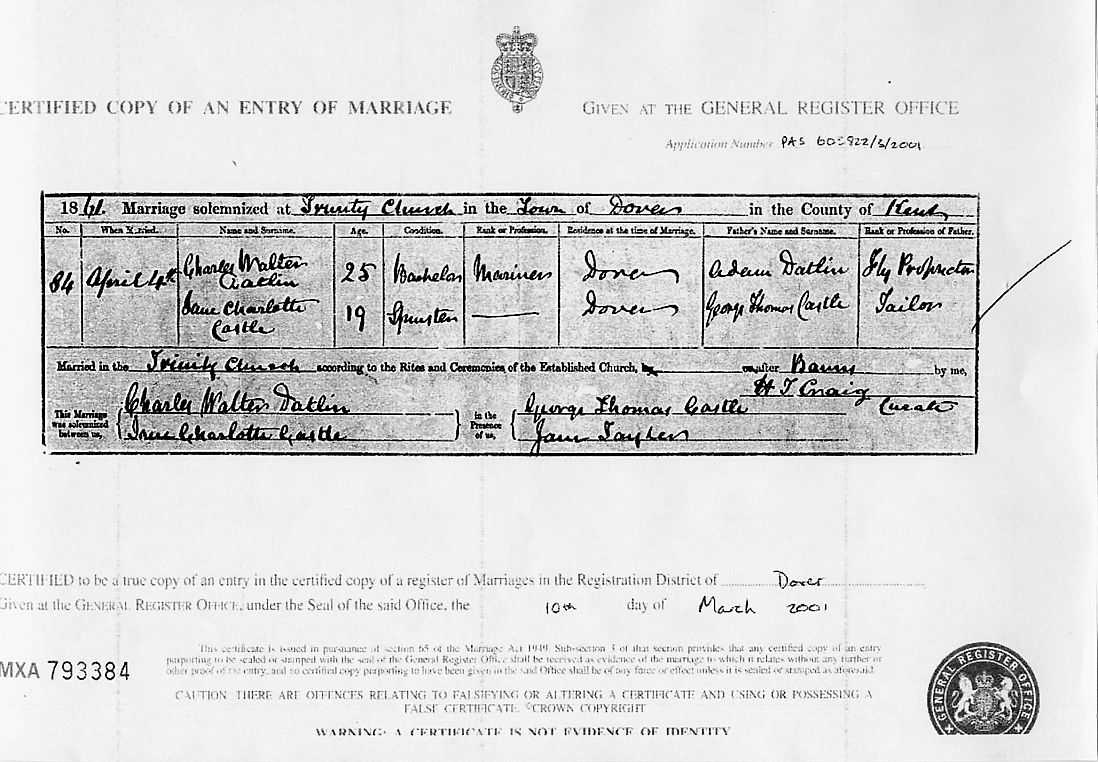 CERTIFIED COPY OF AN ENTRY OF MARRIAGE
GIVEN AT THE GENERAL REGISTER OFFICE
Application Number PAS
1861. Marriage solemnized at Trinity Church in the Town of Dover in the County of Kent
No. When Married. Name and Surname. Age. Condition. Rank or Profession. Residence at the time of Marriage. Father's Name and Surname. Rank or Profession of Father.
84 April 4th Charles Walter Datlin 25 Bachelor Mariner Dover Adam Datlin Fly Proprietor
Jane Charlotte Castle 19 Spinster — Dover George Thomas Castle Tailor
Married in the Trinity Church according to the Rites and Ceremonies of the Established Church, after Banns by me,
H T Craig
Curate
This Marriage was solemnized between us,
Charles Walter Datlin
Charlotte Castle
in the Presence of us,
George Thomas Castle
Jane
CERTIFIED to be a true copy of an entry in the certified copy of a register of Marriages in the Registration District of Dover
Given at the GENERAL REGISTER OFFICE, under the Seal of the said Office, the 10th day of March 2001
MXA 793384
This certificate is issued in pursuance of section 65 of the Marriage Act 1949. Sub-section 3 of that section provides that any certified copy of an entry
purporting to be sealed or stamped with the seal of the General Register Office shall be received as evidence of the marriage to which it relates without any further or
other proof of the entry, and no certified copy purporting to have been given in the said Office shall be of any force or effect unless it is sealed or stamped as aforesaid.
CAUTION: THERE ARE OFFENCES RELATING TO FALSIFYING OR ALTERING A CERTIFICATE AND USING OR POSSESSING A
FALSE CERTIFICATE. ©CROWN COPYRIGHT
WARNING: A CERTIFICATE IS NOT EVIDENCE OF IDENTITY
GENERAL REGISTER OFFICE